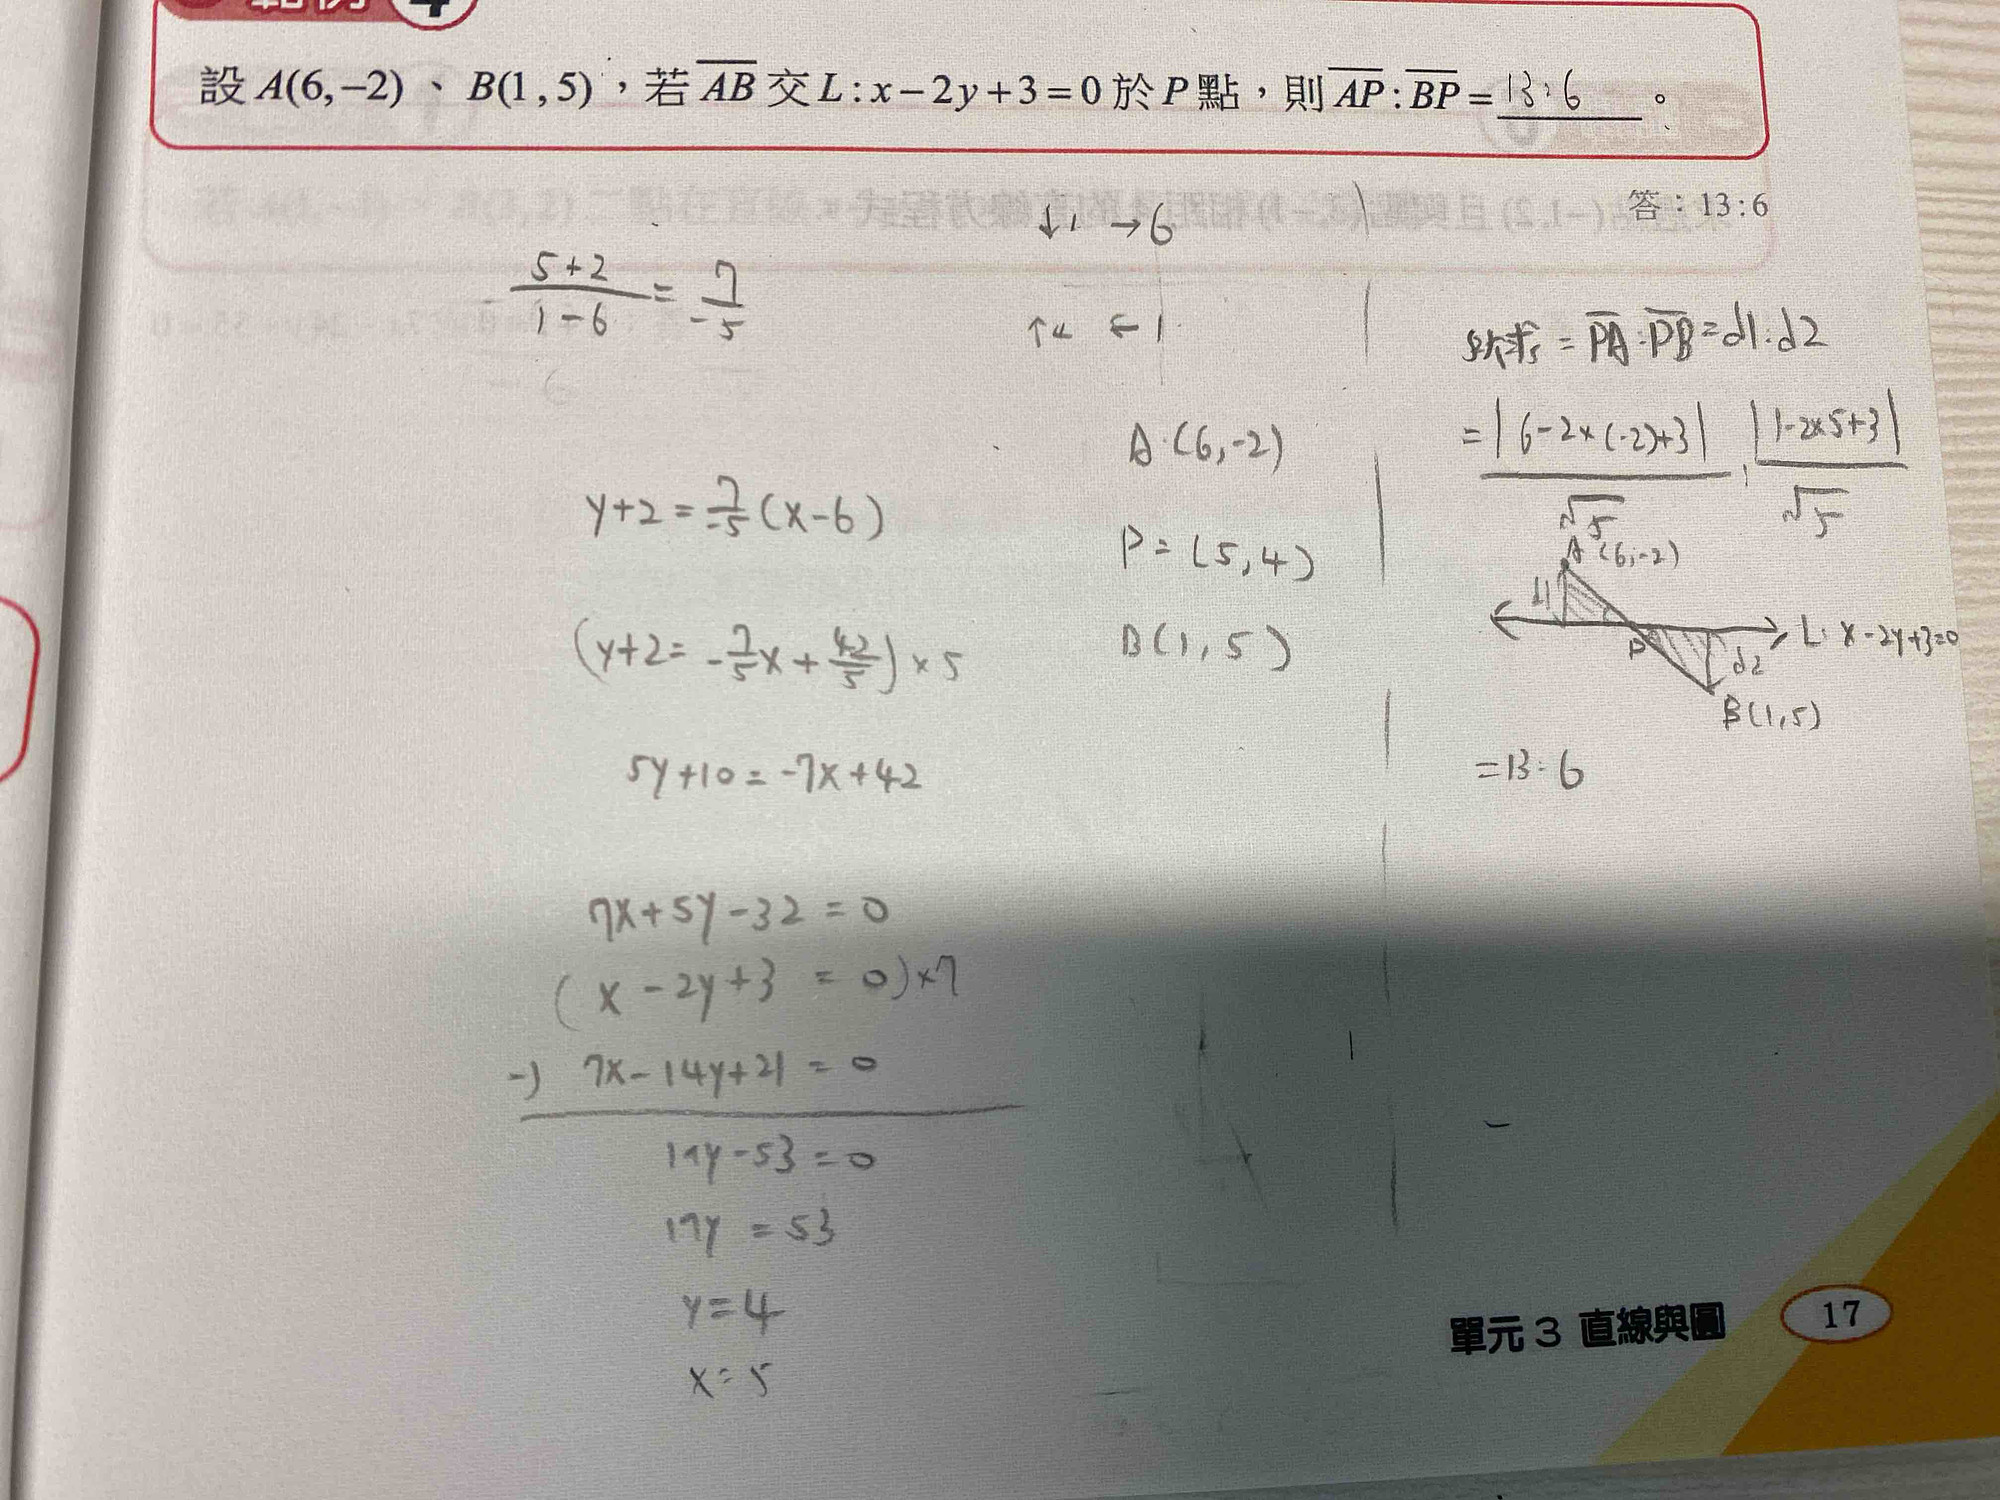 範例 4
設 A(6,−2)、B(1,5),若 AB 交 L:x−2y+3=0 於 P 點,則 AP:BP= 13:6 。
答:13:6
5+2/1-6 = 7/-5
y+2=7/-5(x-6)
(y+2=-7/5x+42/5)×5
5y+10=-7x+42
7x+5y-32=0
(x-2y+3=0)×7
-) 7x-14y+21=0
19y-53=0
17y=53
y=4
x=5
↓1 →6
↑4 ←1
A(6,-2)
P=(5,4)
B(1,5)
所求=PA:PB=d1:d2
=|6-2×(-2)+3|/√5:|1-2×5+3|/√5
A(6,-2)
d1
L:x-2y+3=0
P
d2
B(1,5)
=13:6
單元 3 直線與圓 17